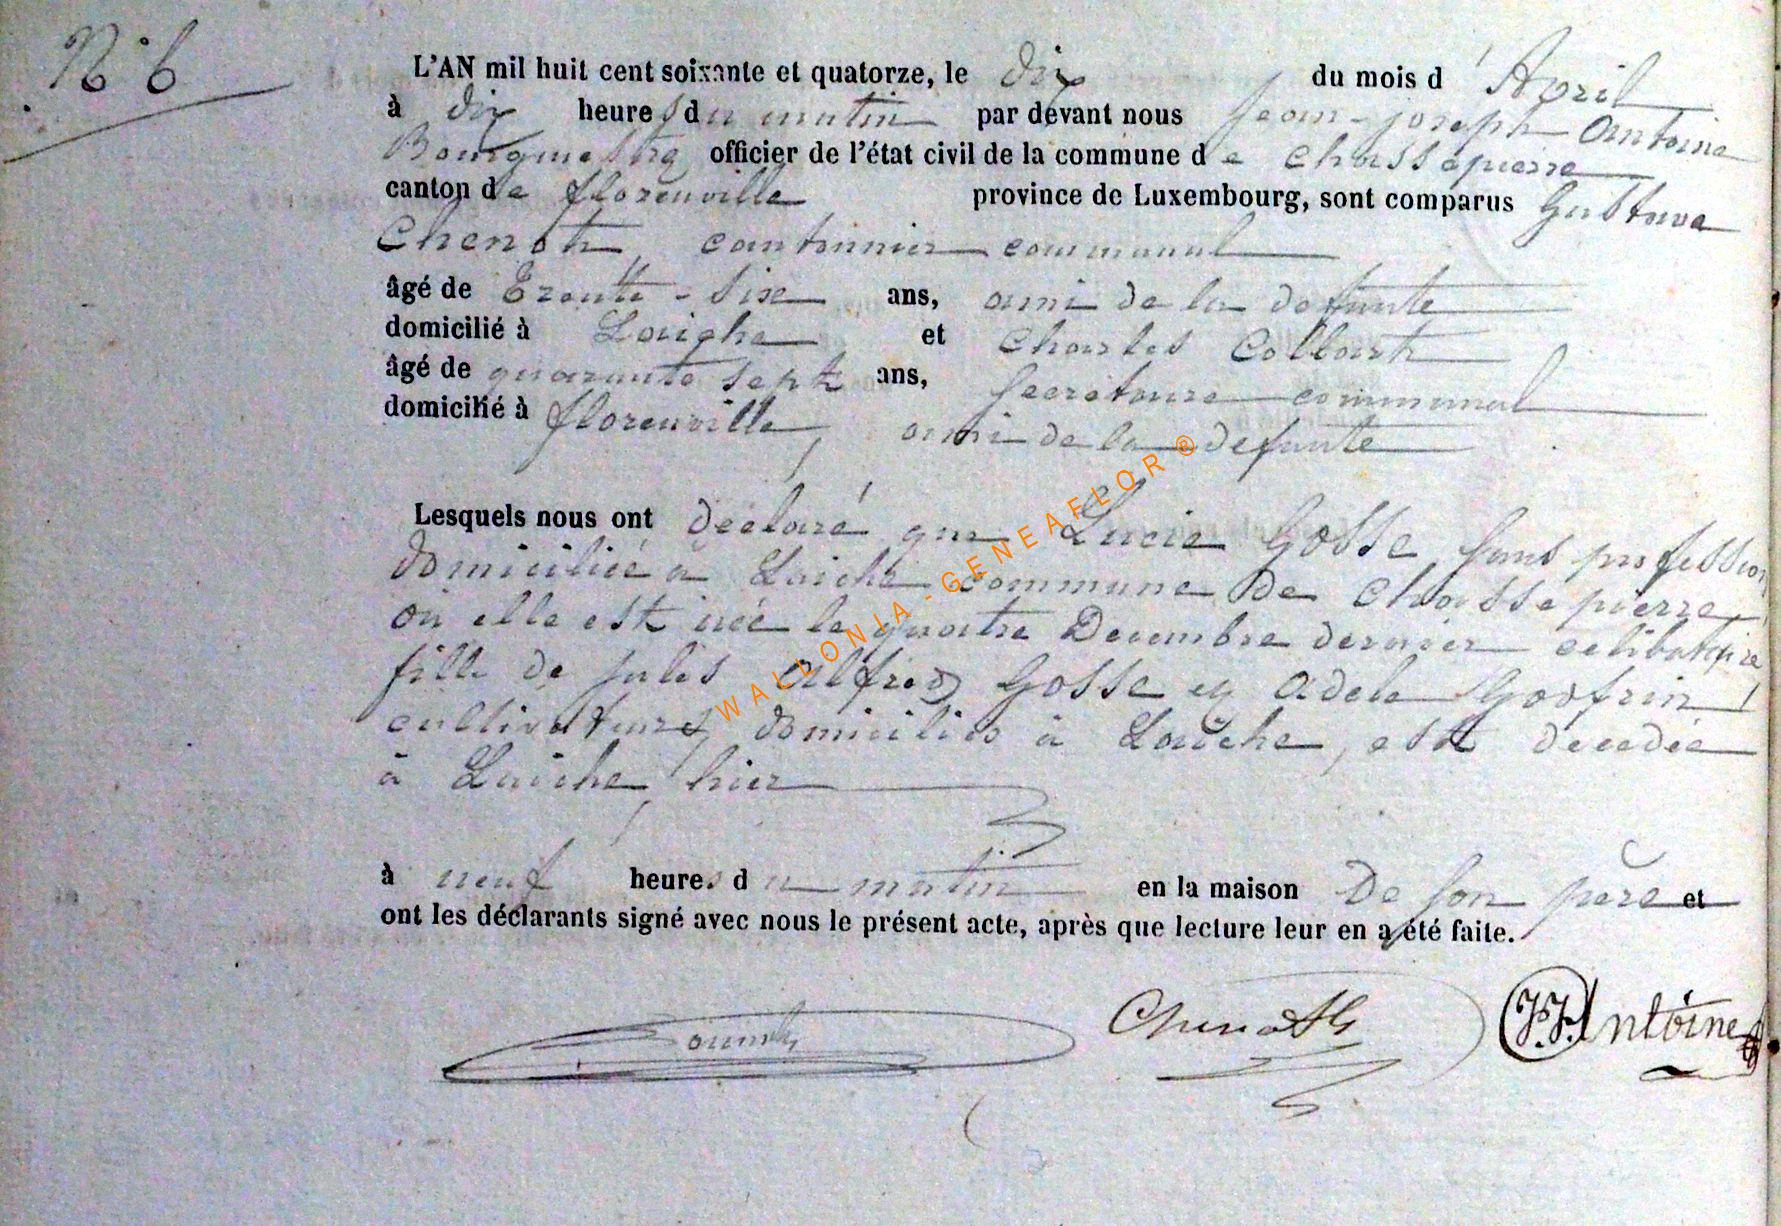 N° 6
L'AN mil huit cent soixante et quatorze, le dix du mois d'Avril
à dix heures du matin par devant nous Jean-Joseph Antoine
Bourgmestre officier de l'état civil de la commune de Chassepierre
canton de Florenville province de Luxembourg, sont comparus Gustave
Chenoth, cantonnier communal
âgé de Trente-six ans, ami de la defunte
domicilié à Laiche et Charles Collart
âgé de quarante sept ans, Secretaire communal
domicilié à Florenville, ami de la defunte
Lesquels nous ont déclaré que Lucie Gosse sans profession
domiciliée à Laiche commune de Chassepierre,
où elle est née le quatre Decembre dernier celibataire
fille de Jules Alfred Gosse et Adele Goffrin,
cultivateurs, domiciliés à Laiche, est décédée
à Laiche, hier
à neuf heures du matin en la maison de son père et
ont les déclarants signé avec nous le présent acte, après que lecture leur en a été faite.
Chenoth J.J. Antoine
WALLONIA-GENEAFLOR®